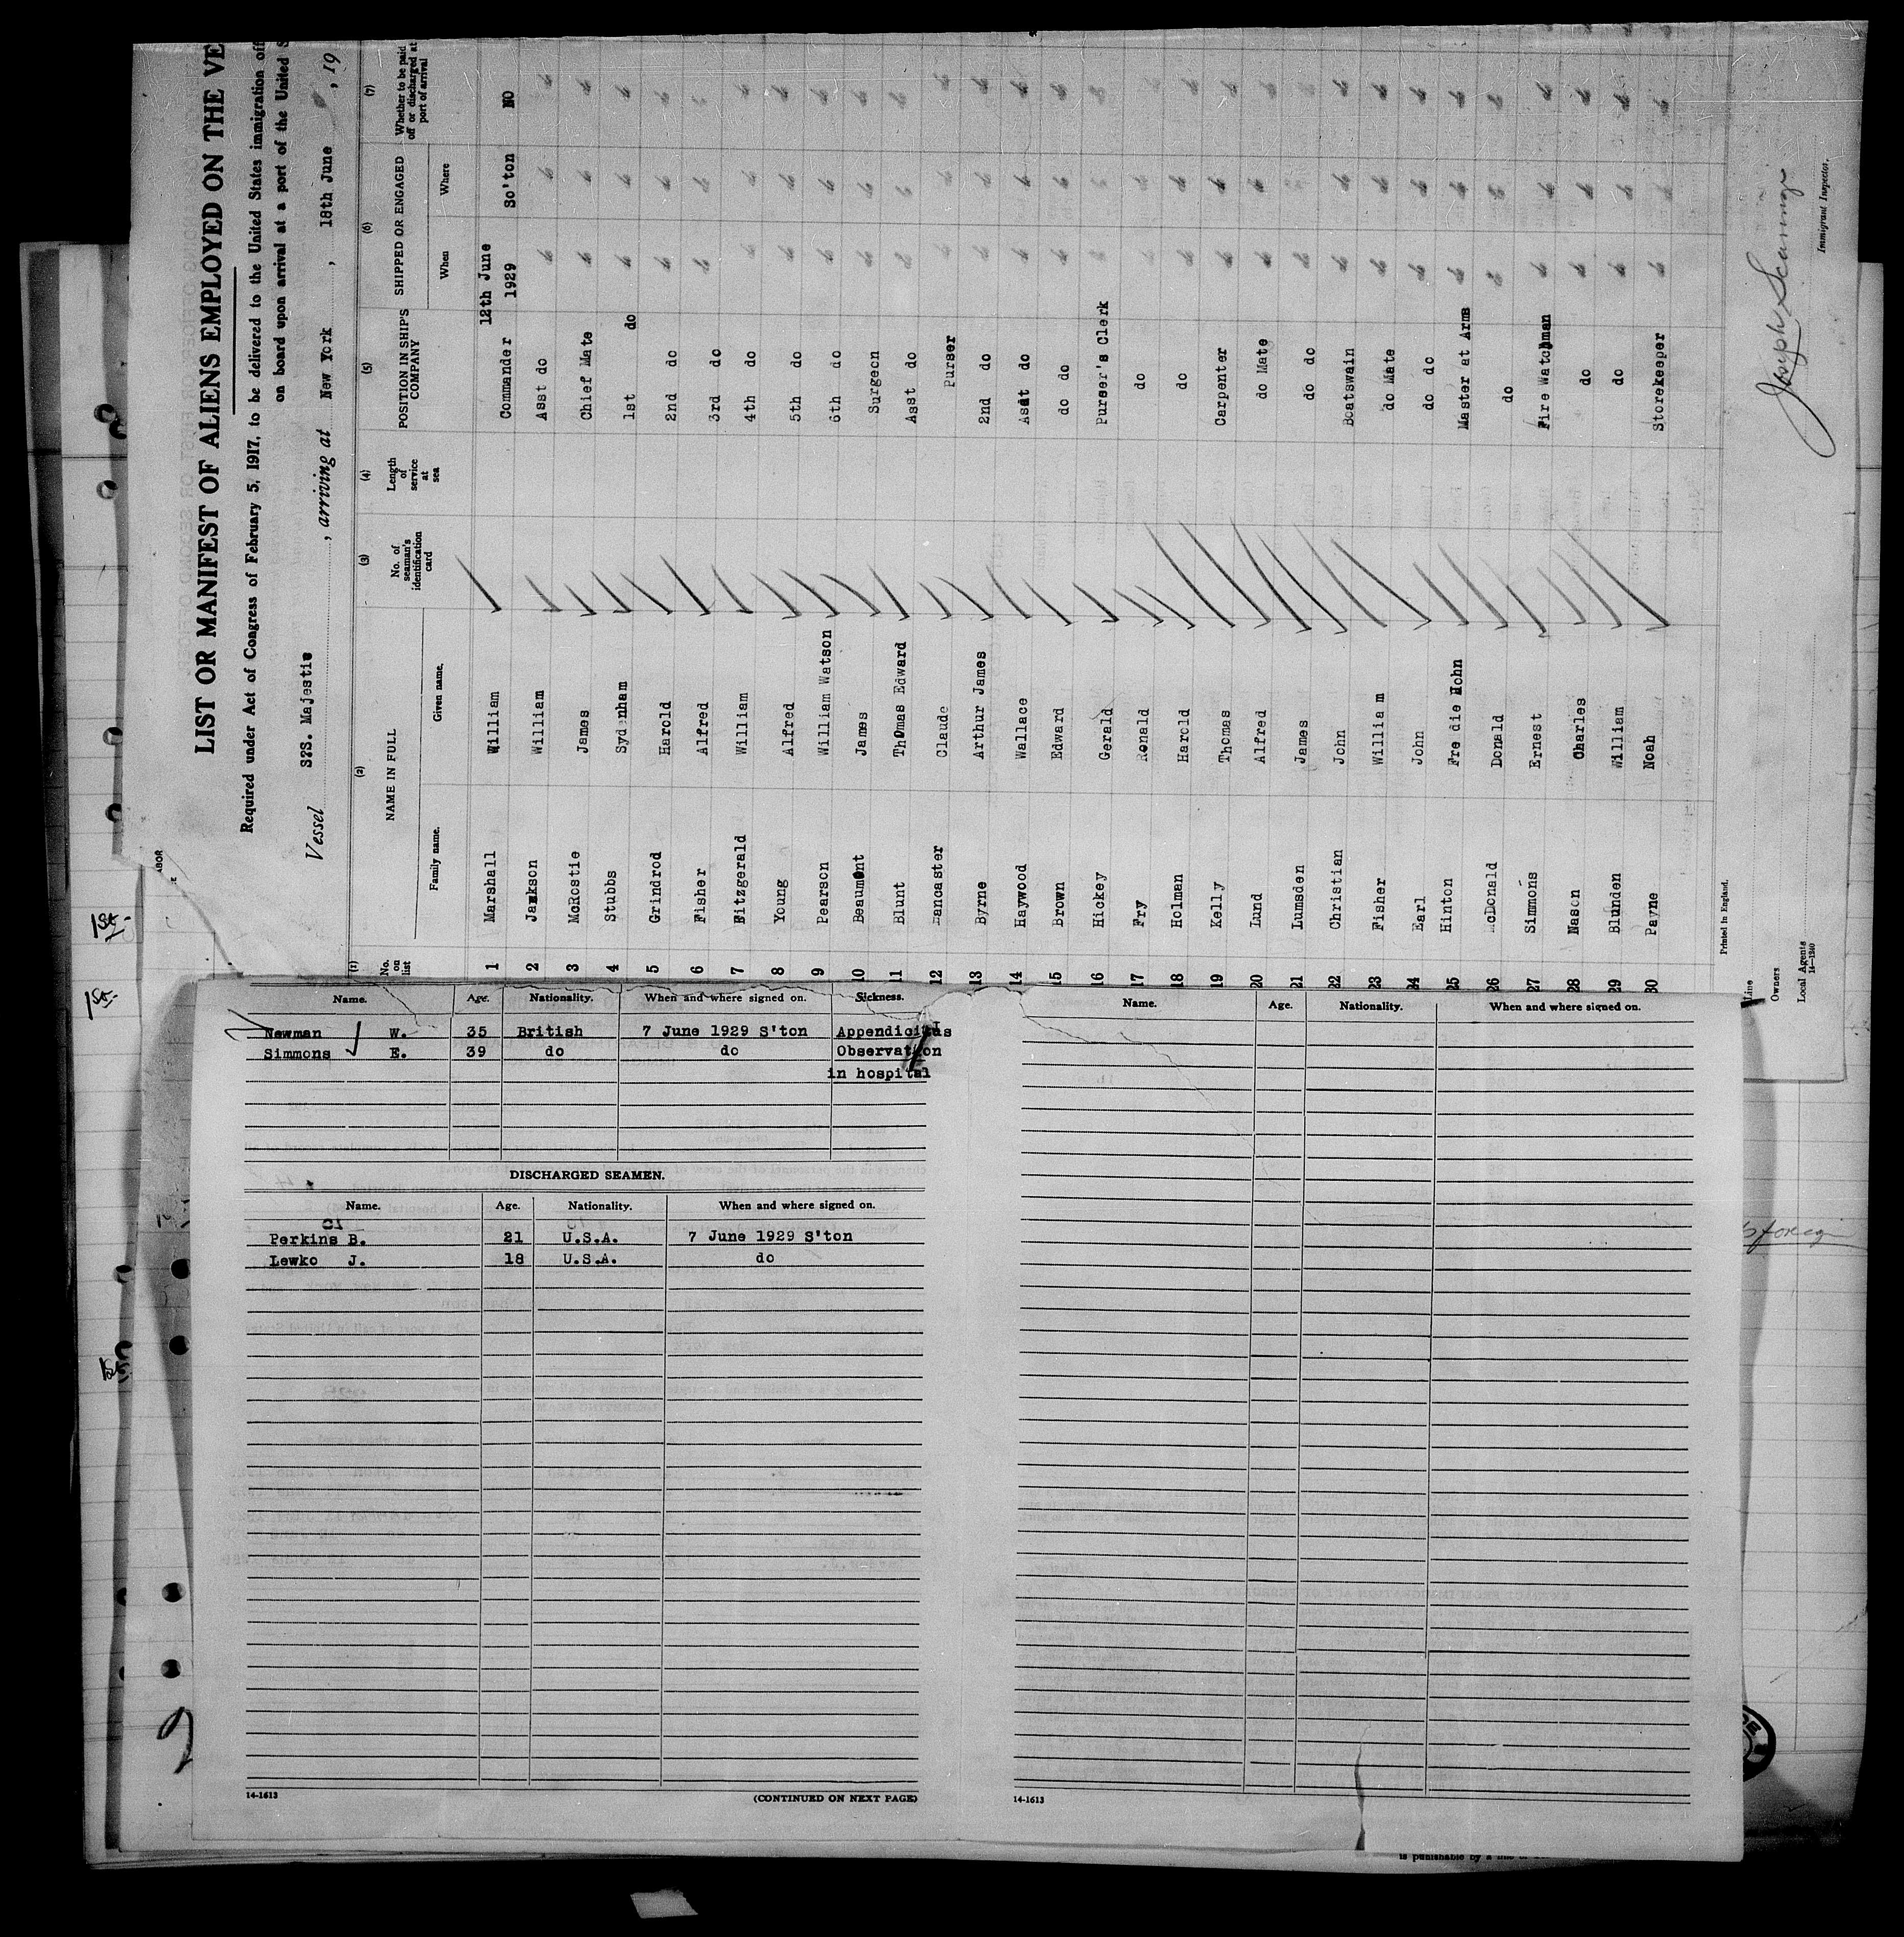 LIST OR MANIFEST OF ALIENS EMPLOYED ON THE VE
Required under Act of Congress of February 5, 1917, to be delivered to the United States immigration off
on board upon arrival at a port of the United S
Vessel S?S. Majestic , arriving at New York , 18th June , 19
(1) (2) (3) (4) (5) (6) (7)
No. on list NAME IN FULL No. of seaman's identification card Length of service at sea POSITION IN SHIP'S COMPANY SHIPPED OR ENGAGED Whether to be paid off or discharged at port of arrival
Family name. Given name. When Where
12th June
1 Marshall William Commander 1929 So'ton NO
2 Jackson William Asst do " " "
3 McRostie James Chief Mate " " "
4 Stubbs Sydenham 1st do " " "
5 Grindrod Harold 2nd do " " "
6 Fisher Alfred 3rd do " " "
7 Fitzgerald William 4th do " " "
8 Young Alfred 5th do " " "
9 Pearson William Watson 6th do " " "
10 Beaumont James Surgeon " " "
11 Blunt Thomas Edward Asst do " " "
12 Lancaster Claude Purser " " "
13 Byrne Arthur James 2nd do " " "
14 Haywood Wallace Asst do " " "
15 Brown Edward do do " " "
16 Hickey Gerald Purser's Clerk " " "
17 Fry Ronald do
18 Holman Harold do " " "
19 Kelly Thomas Carpenter " " "
20 Lund Alfred do Mate " " "
21 Lumsden James do do " " "
22 Christian John Boatswain " " "
23 Fisher William do Mate " " "
24 Earl John do do " " "
25 Hinton Fre die John Master at Arms " " "
26 McDonald Donald do " " "
27 Simmons Ernest Fire Watchman " " "
28 Nason Charles do " " "
29 Blunden William do " " "
30 Payne Noah Storekeeper " " "
Printed in England.
Line
Owners
Local Agents
14-1240
Joseph
Immigrant Inspector.
ABOR
1st.
1st.
Name. Age. Nationality. When and where signed on. Sickness.
Newman W. 35 British 7 June 1929 S'ton Appendicitus
Simmons E. 39 do do Observation
in hospital
DISCHARGED SEAMEN.
Name. Age. Nationality. When and where signed on.
Perkins B. 21 U.S.A. 7 June 1929 S'ton
Lewko J. 18 U.S.A. do
14-1613 (CONTINUED ON NEXT PAGE)
Name. Age. Nationality. When and where signed on.
14-1613
is punishable by a